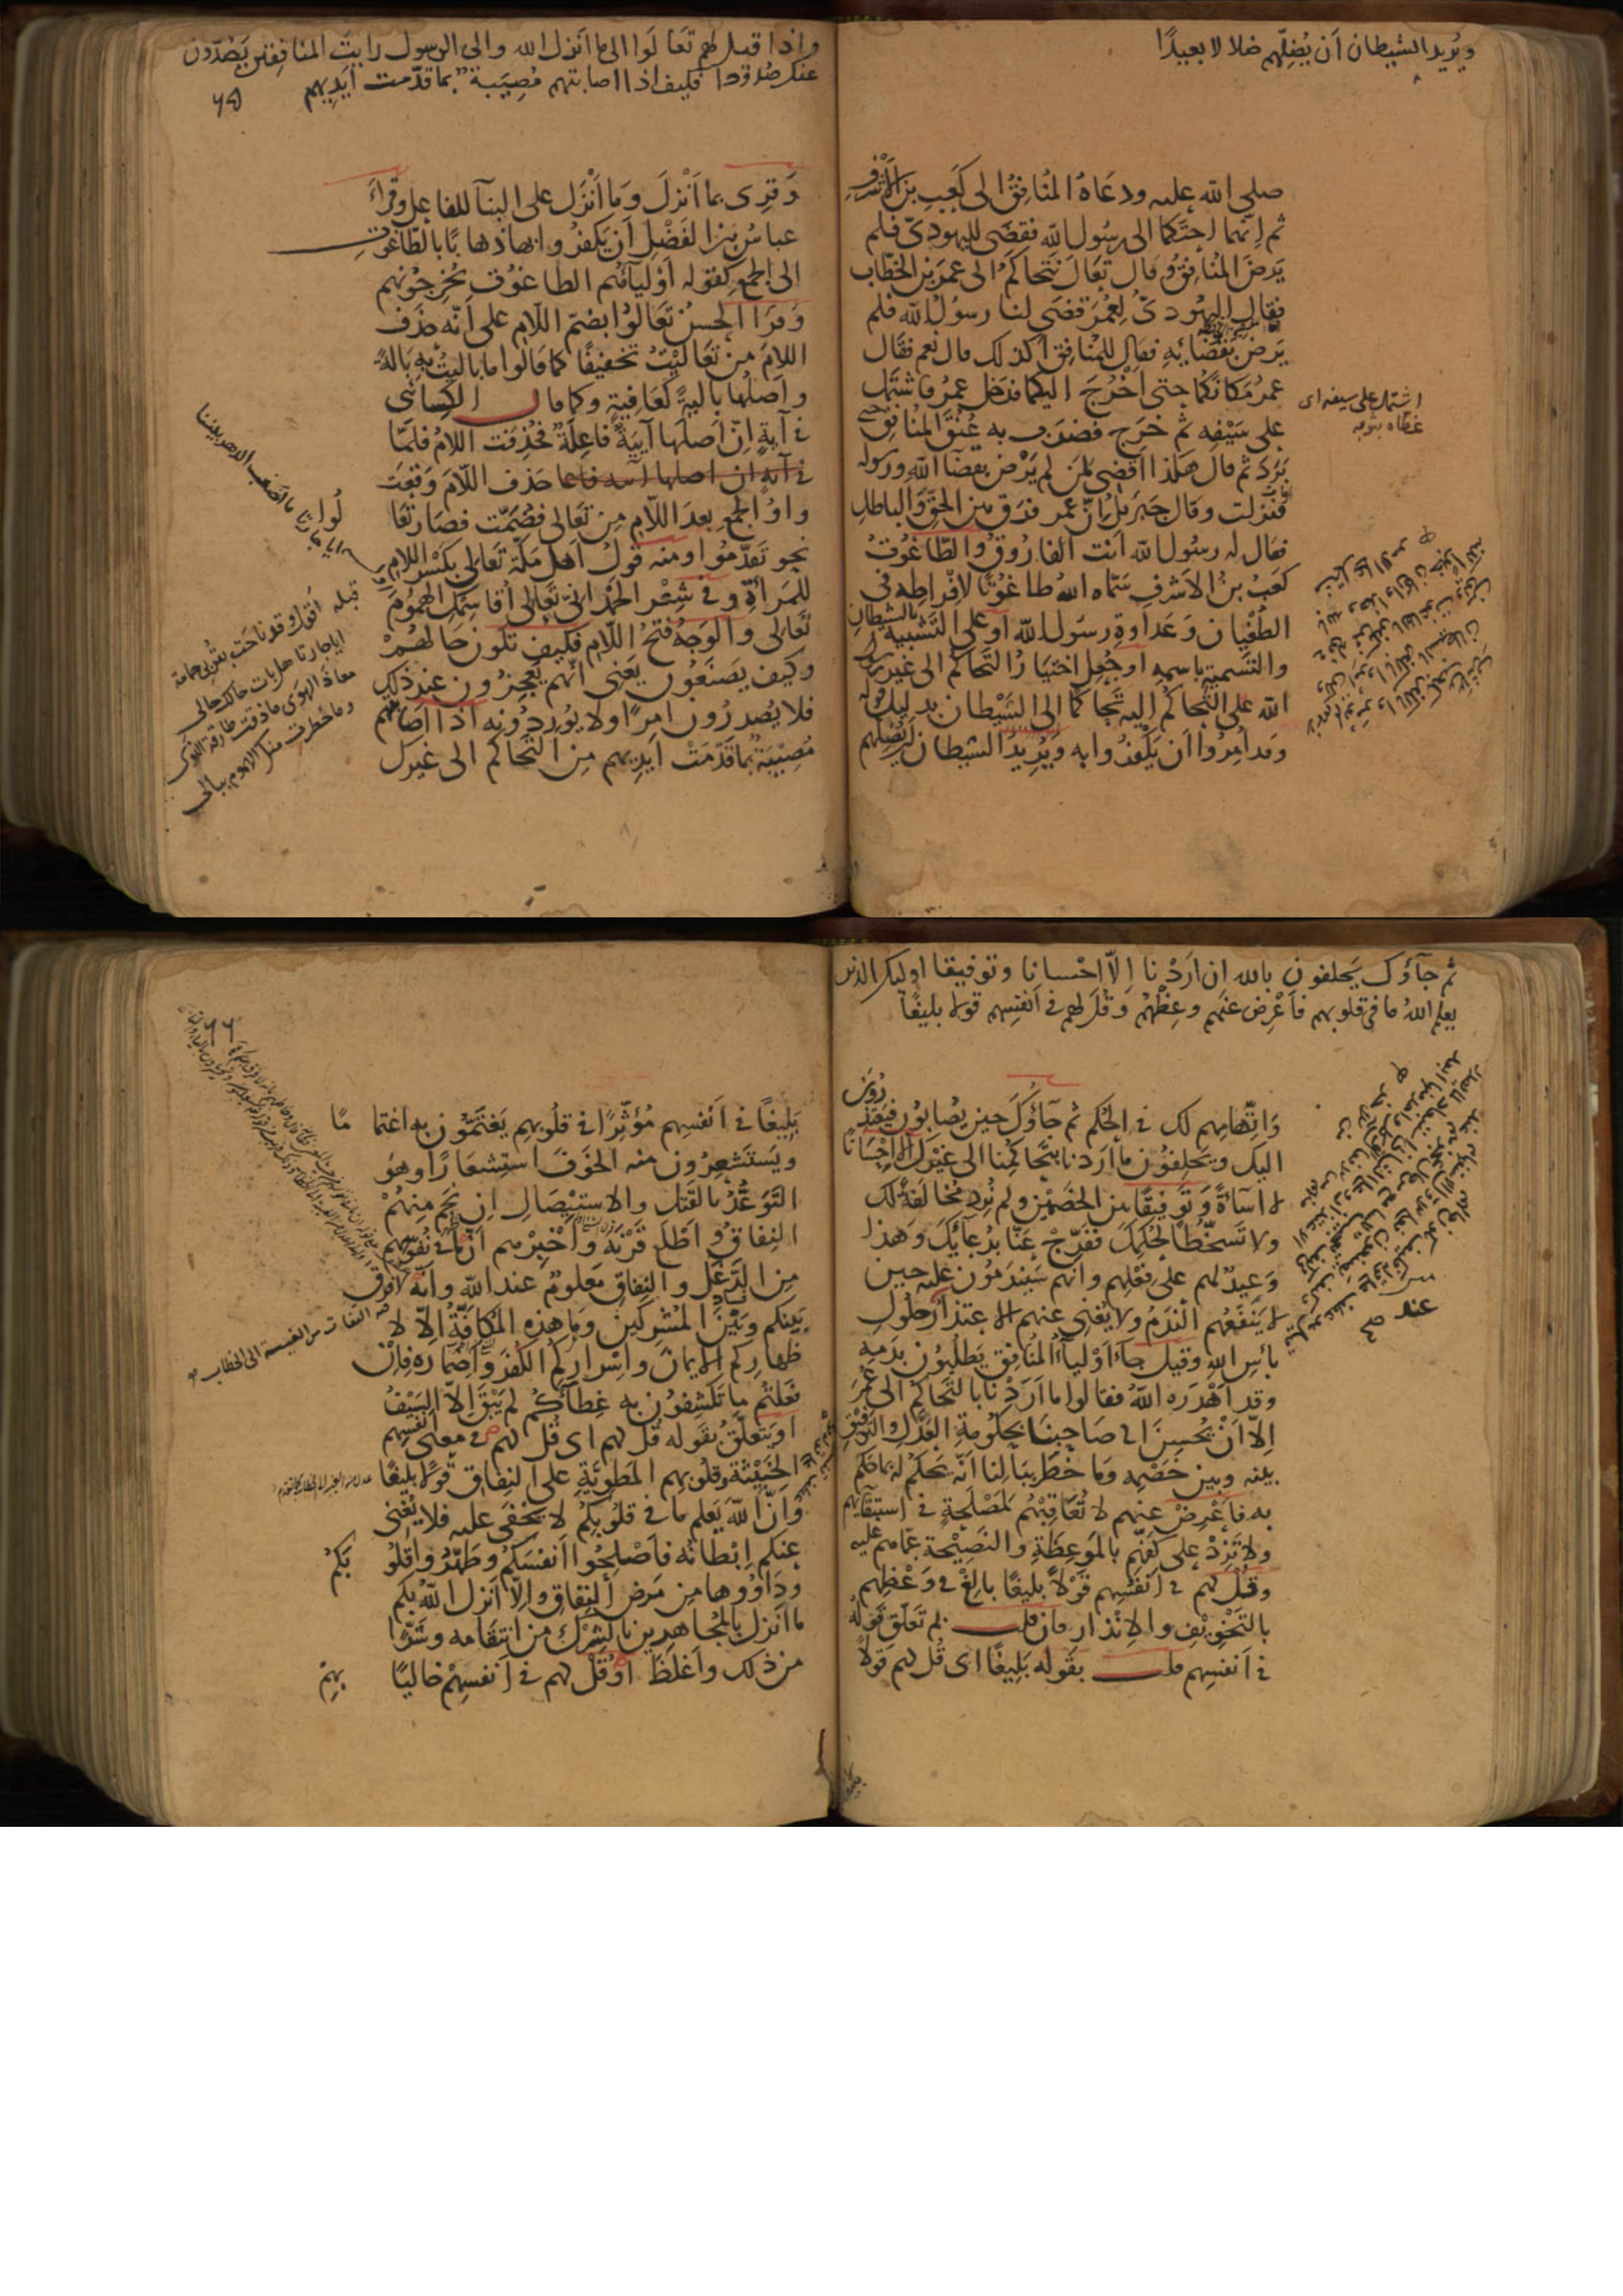 ويريد الشيطان أن يُضِلّهم ضلالا بعيدًا
صلى الله عليه ودعاه المنافق الى كعب بن الاشرف
ثم إنهما احتكما الى رسول الله فقضى لليهودي فلم
يرض المنافق وقال تعال نتحاكم الى عمر بن الخطاب
فقال اليهودي لعمر قضى لنا رسول الله فلم
يرض بقضائه فقال للمنافق أكذلك قال نعم فقال
عمر مكانكما حتى أخرج اليكما فدخل عمر فاشتمل
على سيفه ثم خرج فضرب به عنق المنافق حتى
برد ثم قال هكذا أقضي لمن لم يرض بقضآ الله ورسوله
فنزلت وقال جبريل إن عمر فرق بين الحق والباطل
فقال له رسول الله أنت الفاروق والطاغوت
كعب بن الاشرف سماه الله طاغوتا لافراطه في
الطغيان وعداوة رسول الله أو على التشبيه بالشيطان
والتسمية باسمه أو جعل اختيار التحاكم الى غير رسول
الله على التحاكم إليه تحاكما الى الشيطان بدليل قوله
وقد أمروا أن يكفروا به ويريد الشيطان أن يضلهم
اشتمل على سيفه اى
غطاه بثوبه
واذا قيل لهم تعالوا الى ما انزل الله والى الرسول رايت المنافقين يصدّون
عنك صدودا فكيف اذا اصابتهم مصيبة بما قدّمت ايديهم
٦٥
وقرى بما أنزل وما أنزل على البنآ للفاعل وقرأ
عباس بن الفضل أن يكفروا بها ذهابًا بالطاغوت
الى الجمع كقوله أوليآؤهم الطاغوت يخرجونهم
وقرأ الحسن تعالوا بضم اللام على أنه حذف
اللام من تعاليت تخفيفًا كما قالوا ما باليت به بالة
وأصلها بالية كعافية وكما قال الكسائي
في آية إن أصلها آيية فاعلة فحذفت اللام فلما
حذف اللام وقعت
واو الجمع بعد اللام من تعالى فضمت فصار تعالوا
نحو تقدموا ومنه قول أهل مكة تعالي بكسر اللام
للمرأة وفي شعر الحمداني تعالي أقاسمك الهموم
تعالي والوجه فتح اللام فكيف تكون حالهم
وكيف يصنعون يعني أنهم يعجزون عند ذلك
فلا يصدرون امرًا ولا يوردونه اذا اصابتهم
مصيبة بما قدمت أيديهم من التحاكم الى غيرك
ايا جارتا ما انصف الدهر بيننا
قبله أقول وقد ناحت بقربي حمامة
ايا جارتا هل بات حالك حالي
معاذ الهوى ما ذقت طارقة النوى
وما خطرت منك الهموم ببالي
ثم جآؤك يحلفون بالله ان اردنا إلا احسانا وتوفيقا اوليك الذين
يعلم الله ما في قلوبهم فأعرض عنهم وعظهم وقل لهم في أنفسهم قولا بليغًا
واتهامهم لك في الحكم ثم جآؤك حين يصابون فيعتذرون
اليك ويحلفون ما أردنا بتحاكمنا الى غيرك إلا إحسانا
لا اسآءة وتوفيقا بين الخصمين ولم نرد مخالفة لك
ولا تسخطا لحكمك ففرج عنا بدعائك وهذا
وعيد لهم على فعلهم وأنهم سيندمون عليه حين
لا ينفعهم الندم ولا يغني عنهم الاعتذار عند حلول
بأس الله وقيل جآء أوليآء المنافق يطلبون بدمه
وقد أهدره الله فقالوا ما أردنا بالتحاكم الى عمر
إلا أن يحسن الى صاحبنا بحكومة العدل والتوفيق
بينه وبين خصمه وما خطر ببالنا أنه يحكم له بما حكم
به فأعرض عنهم لا تعاقبهم لمصلحة في استبقائهم
ولا تزد على كفهم بالموعظة والنصيحة عما هم عليه
وقل لهم في أنفسهم قولا بليغًا بالغ في وعظهم
بالتخويف والانذار فان قلت بم تعلق قوله
في أنفسهم قلت بقوله بليغًا اى قل لهم قولًا
٦٦
بليغًا في أنفسهم مؤثرًا في قلوبهم يغتمون به اغتماما
ويستشعرون منه الخوف استشعارًا وهو
التوعد بالقتل والاستيصال إن نجم منهم
النفاق وأطلع قرنه وأخبرهم أن ما في نفوسهم
من الدغل والنفاق معلوم عند الله وأنه لا فرق
بينكم وبين المشركين وما هذه المكافة إلا لا
ظهاركم الايمان واسراركم الكفر واضماره فإن
فعلتم ما تكشفون به غطآءكم لم يبق إلا السيف
أو يتعلق بقوله قل لهم اى قل لهم في معنى أنفسهم
الخبيثة وقلوبهم المطوية على النفاق قولا بليغًا
وأن الله يعلم ما في قلوبكم لا يخفى عليه فلا يغني
عنكم إبطانه فأصلحوا أنفسكم وطهروا قلوبكم
وداووها من مرض النفاق وإلا أنزل الله بكم
ما أنزل بالمجاهرين بالشرك من انتقامه وشرًا
من ذلك وأغلظ أو قل لهم في أنفسهم خاليًا بهم
فيه التفات من الغيبة الى الخطاب